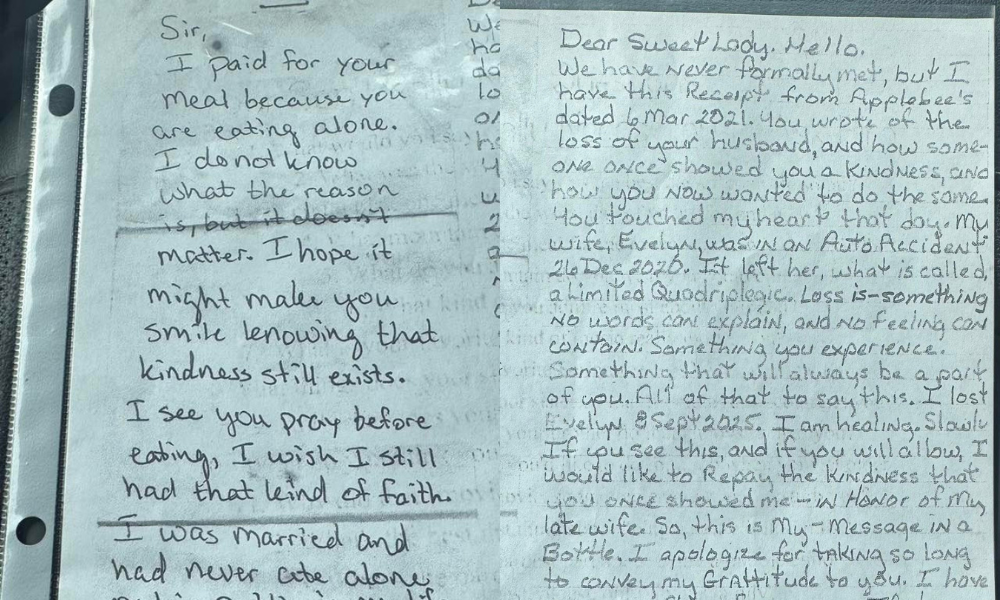 Sir,
I paid for your
meal because you
are eating alone.
I do not know
what the reason
is, but it doesn't
matter. I hope it
might make you
smile knowing that
kindness still exists.
I see you pray before
eating, I wish I still
had that kind of faith.
I was married and
had never ate alone
Dear Sweet Lady. Hello.
We have never formally met, but I
have this Receipt from Applebee's
dated 6 Mar 2021. You wrote of the
loss of your husband, and how some-
one once showed you a kindness, and
how you now wanted to do the same.
You touched my heart that day. My
wife, Evelyn, was in an Auto Accident
26 Dec 2020. It left her, what is called,
a Limited Quadriplegic. Loss is-something
no words can explain, and no feeling can
contain. Something you experience.
Something that will always be a part
of you. All of that to say this. I lost
Evelyn 8 Sept 2025. I am healing. Slowly
If you see this, and if you will allow, I
would like to Repay the kindness that
you once showed me - in Honor of my
late wife. So, this is My-Message in a
Bottle. I apologize for taking so long
to convey my Grattitude to you. I have